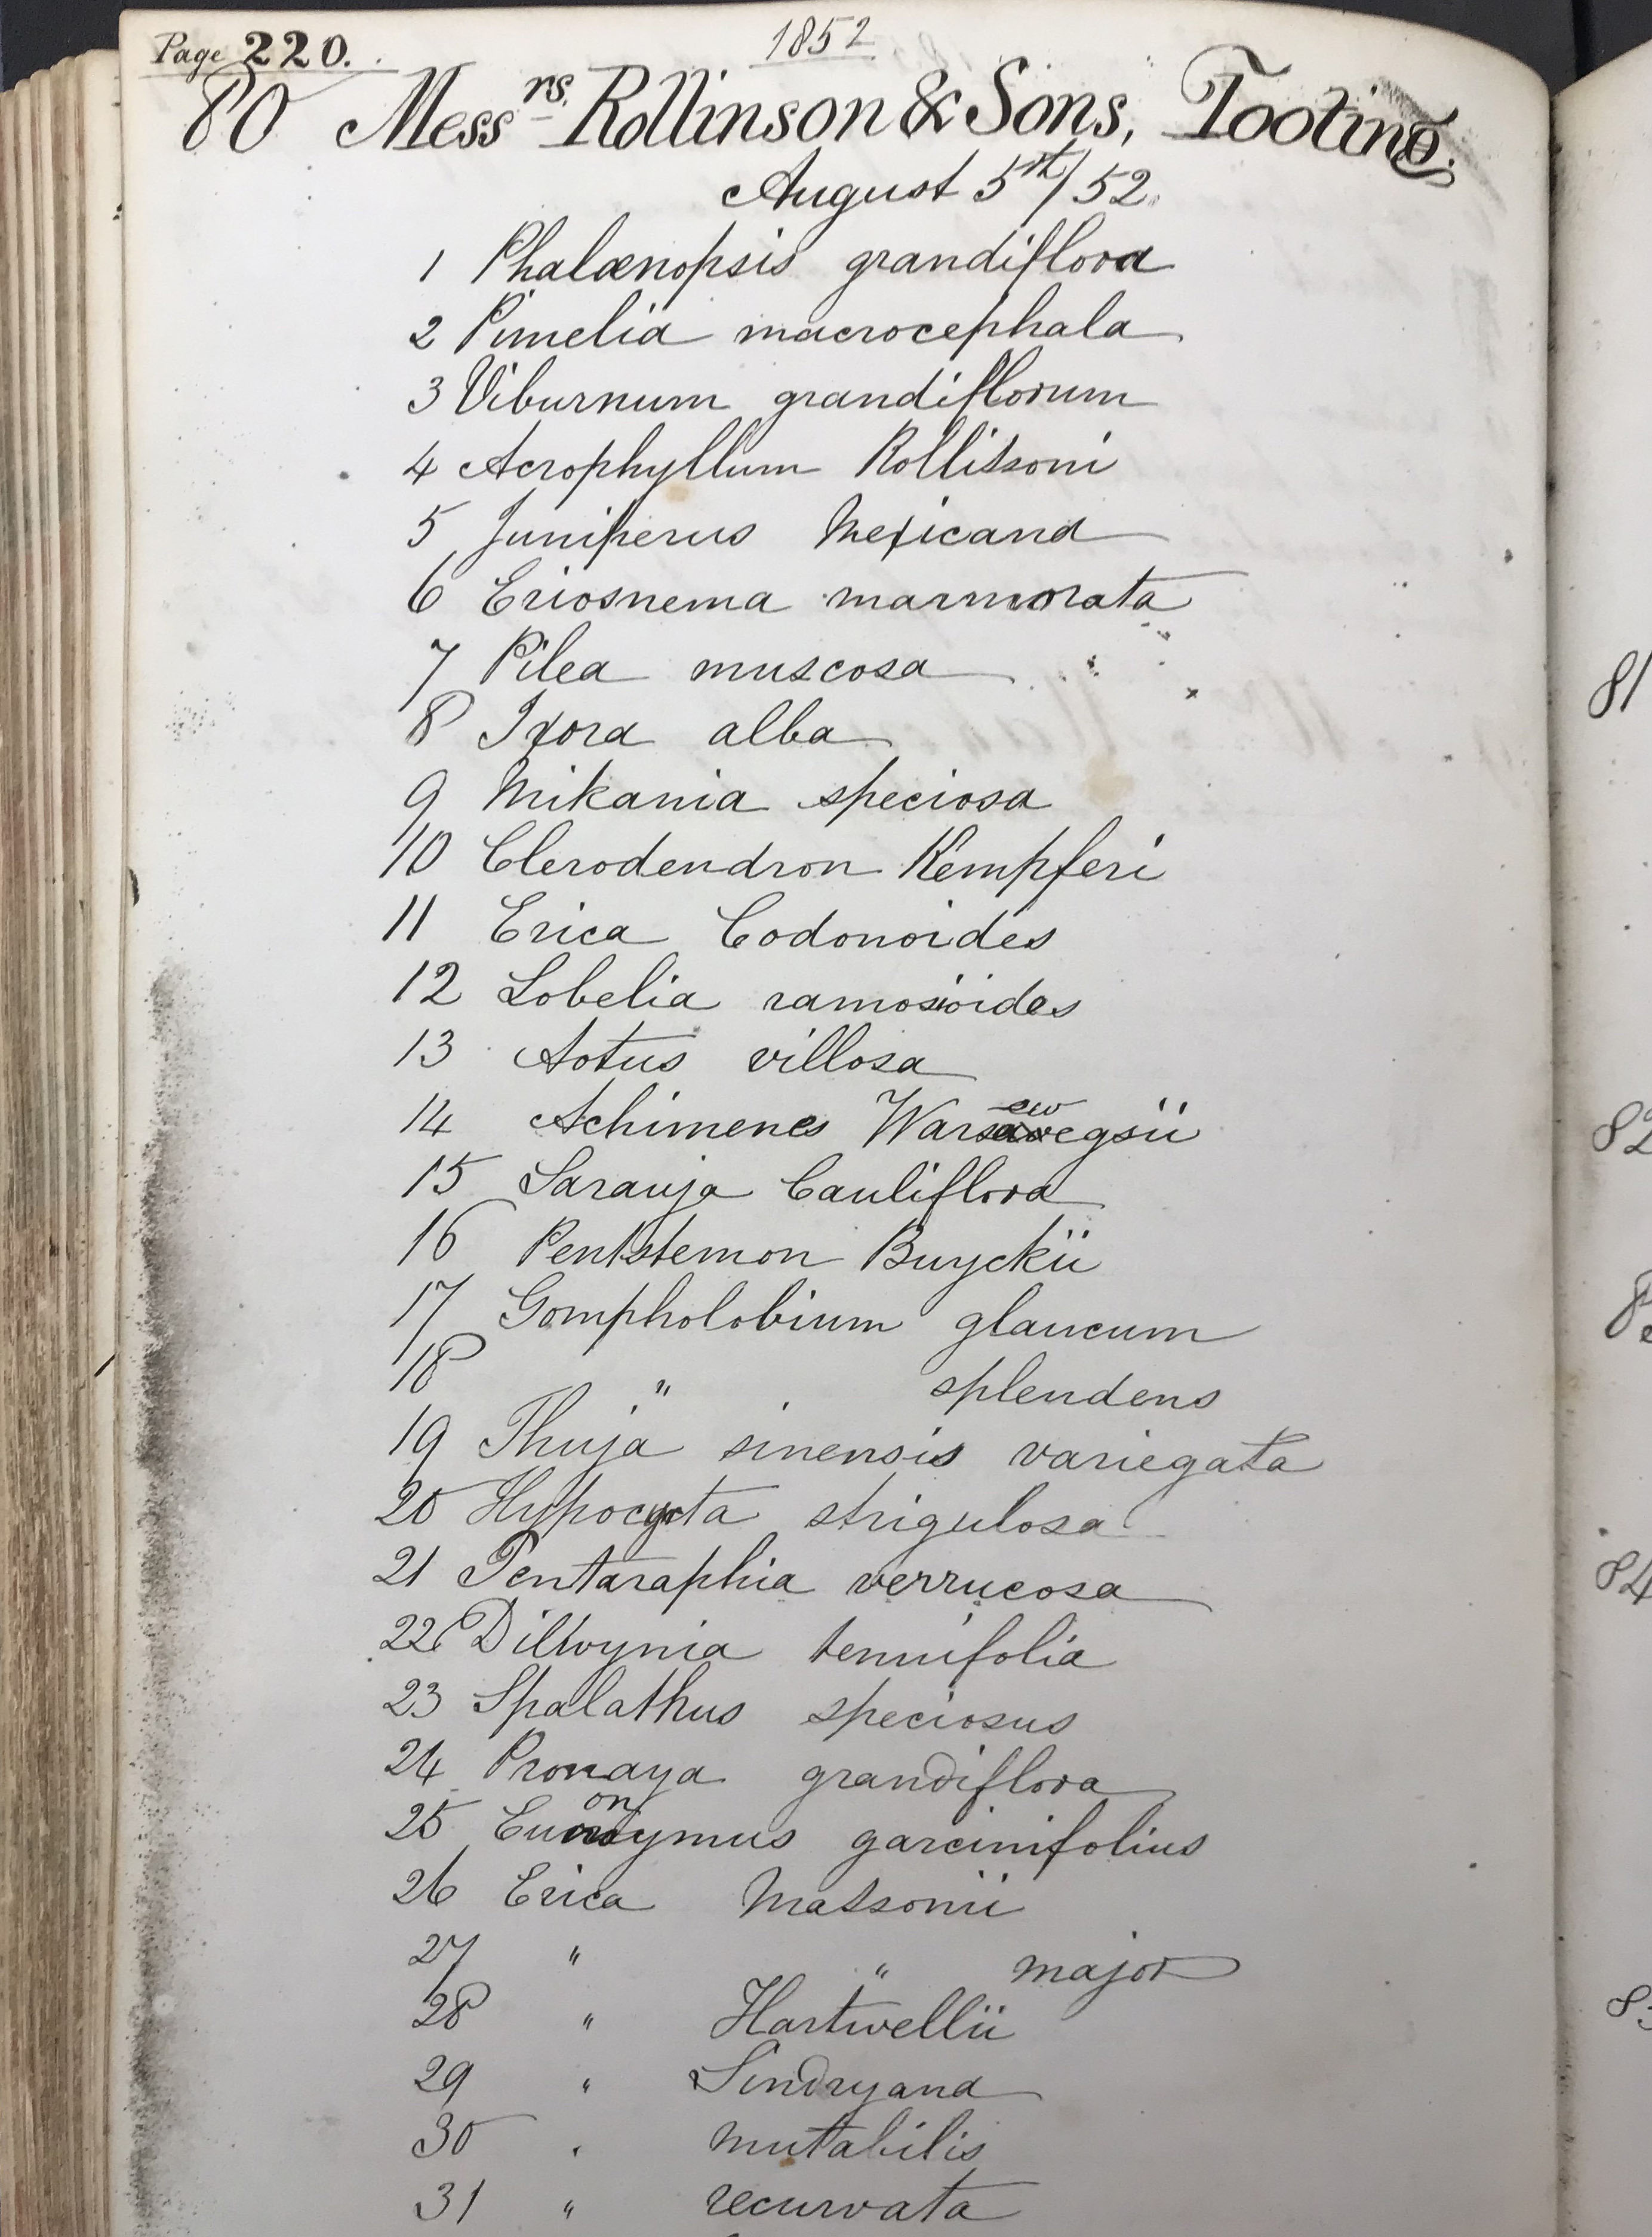 Page 220.
1852
80 Messrs. Rollinson & Sons, Tooting.
August 5th/52.
1 Phalænopsis grandiflora
2 Pimelia macrocephala
3 Viburnum grandiflorum
4 Acrophyllum Rollissoni
5 Juniperus Mexicana
6 Eriosnema marmorata
7 Pilea muscosa
8 Ixora alba
9 Mikania speciosa
10 Clerodendron Kempferi
11 Erica Codonoides
12 Lobelia ramosioides
13 Aotus villosa
14 Achimenes Warscewegsii
15 Sarauja Cauliflora
16 Pentstemon Buyckii
17 Gompholobium glaucum
18 " splendens
19 Thuja sinensis variegata
20 Hypocyrta strigulosa
21 Pentaraphia verrucosa
22 Dillwynia tenuifolia
23 Spalathus speciosus
24 Pronaya grandiflora
25 Euonymus garcinifolius
26 Erica Massonii
27 " " major
28 " Hartwellii
29 " Sindryana
30 " mutabilis
31 " recurvata
81
82
84